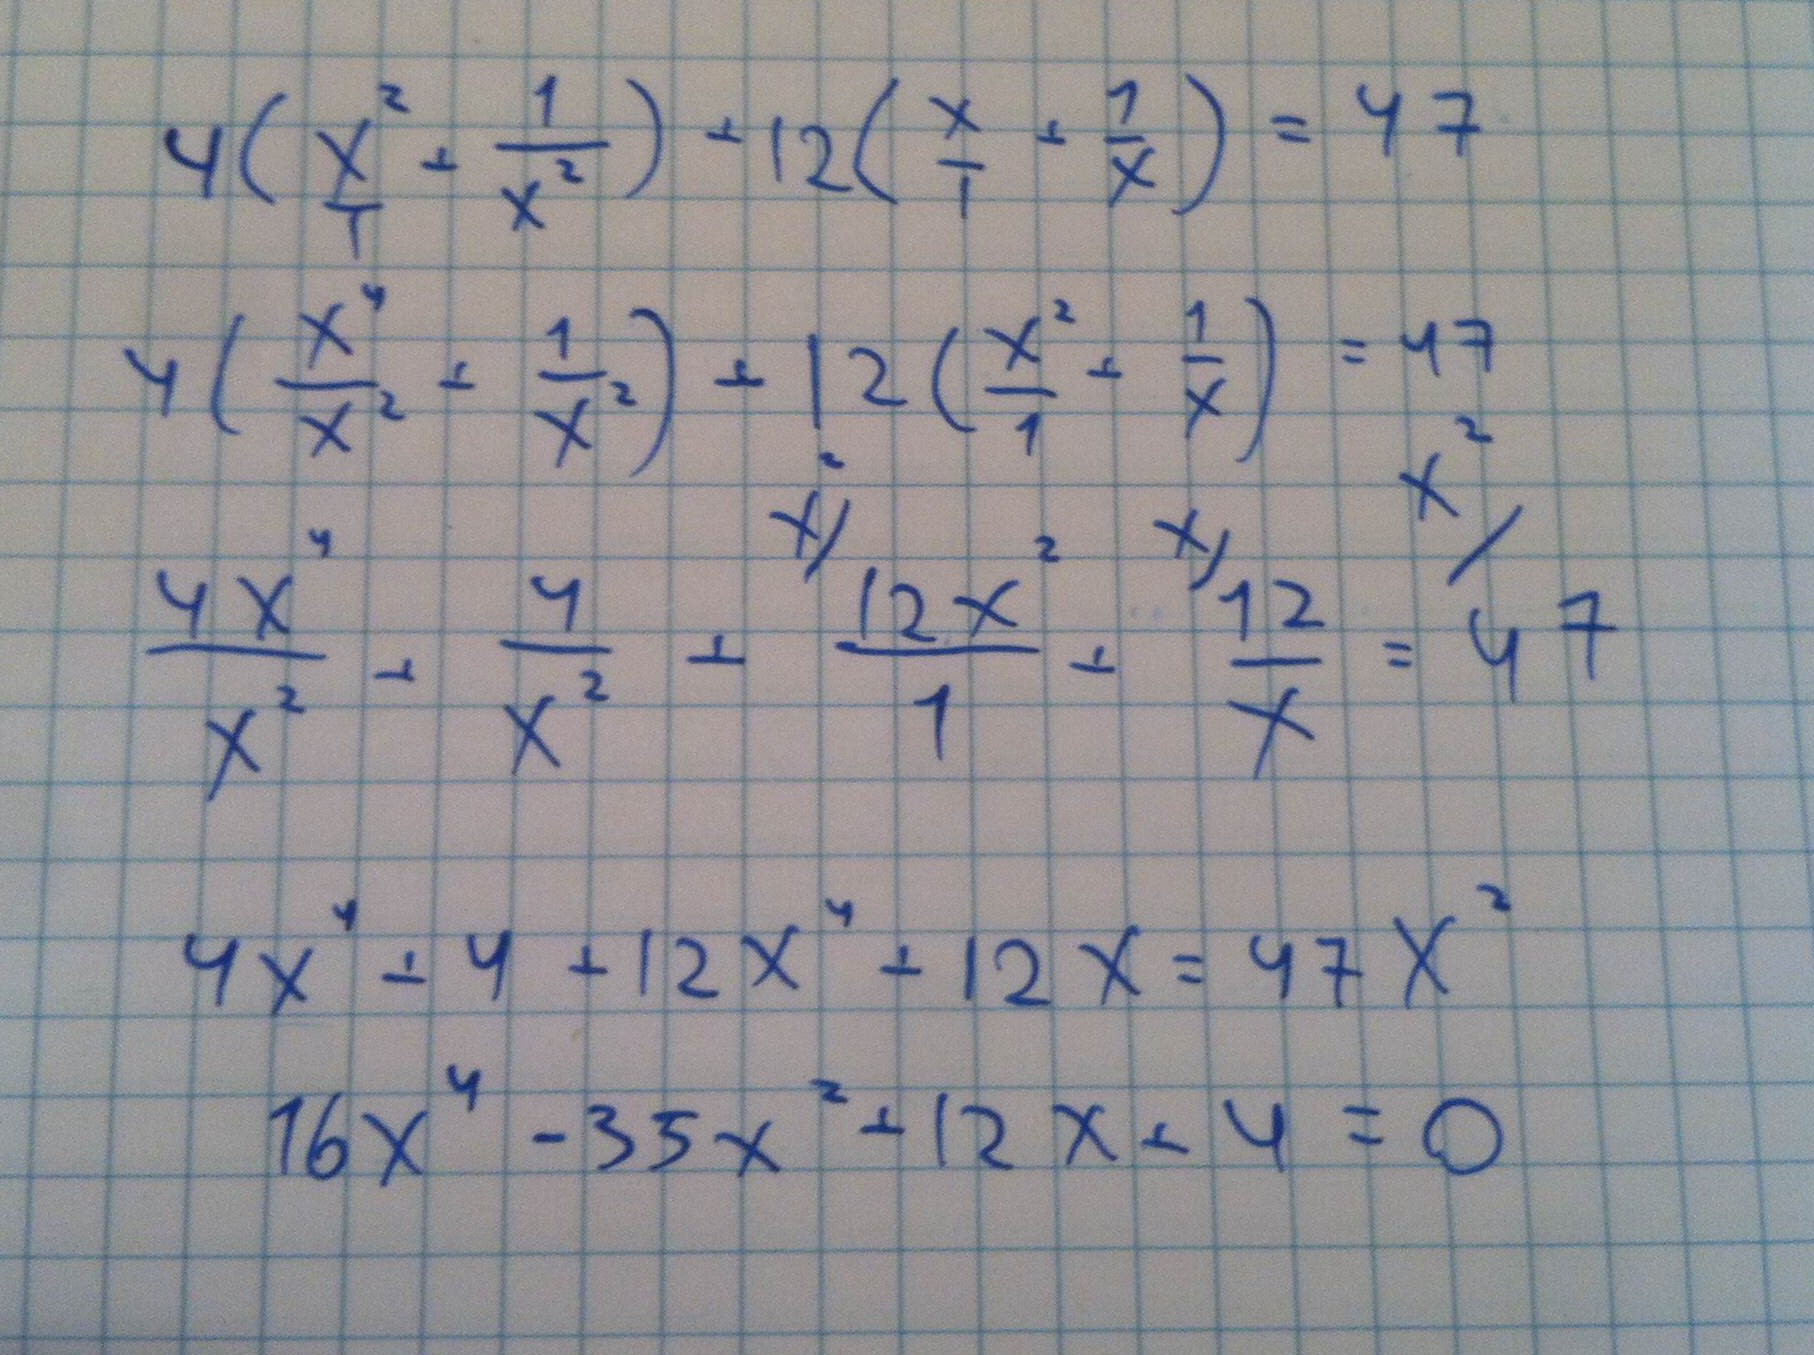 4(x²/1 + 1/x²) + 12(x/1 + 1/x) = 47
4(x⁴/x² + 1/x²) + 12(x²/1 + 1/x) = 47
x²/ x/ x²/
4x⁴/x² + 4/x² + 12x²/1 + 12/x = 47
4x⁴ + 4 + 12x⁴ + 12x = 47x²
16x⁴ - 35x² + 12x + 4 = 0